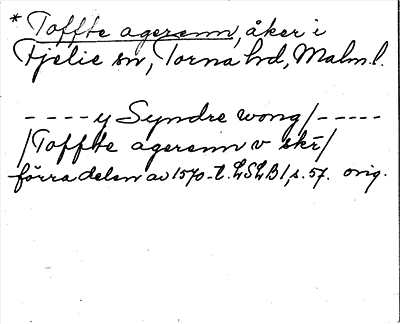 * Toffte agerenn, åker i
Fjelie sn, Torna hd, Malm. l.
- - - - y Syndre wong / - - - - -
/ Toffte agerenn v skī /
förra delen av 1570-t. LSLB 1, s. 57. orig.